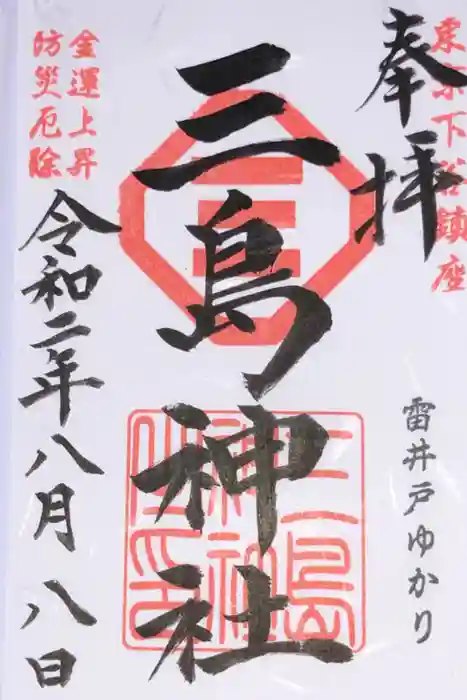 東京下谷鎮座
奉拝
雷井戸ゆかり
三島神社
三島神社之印
金運上昇
防災厄除
令和二年八月八日